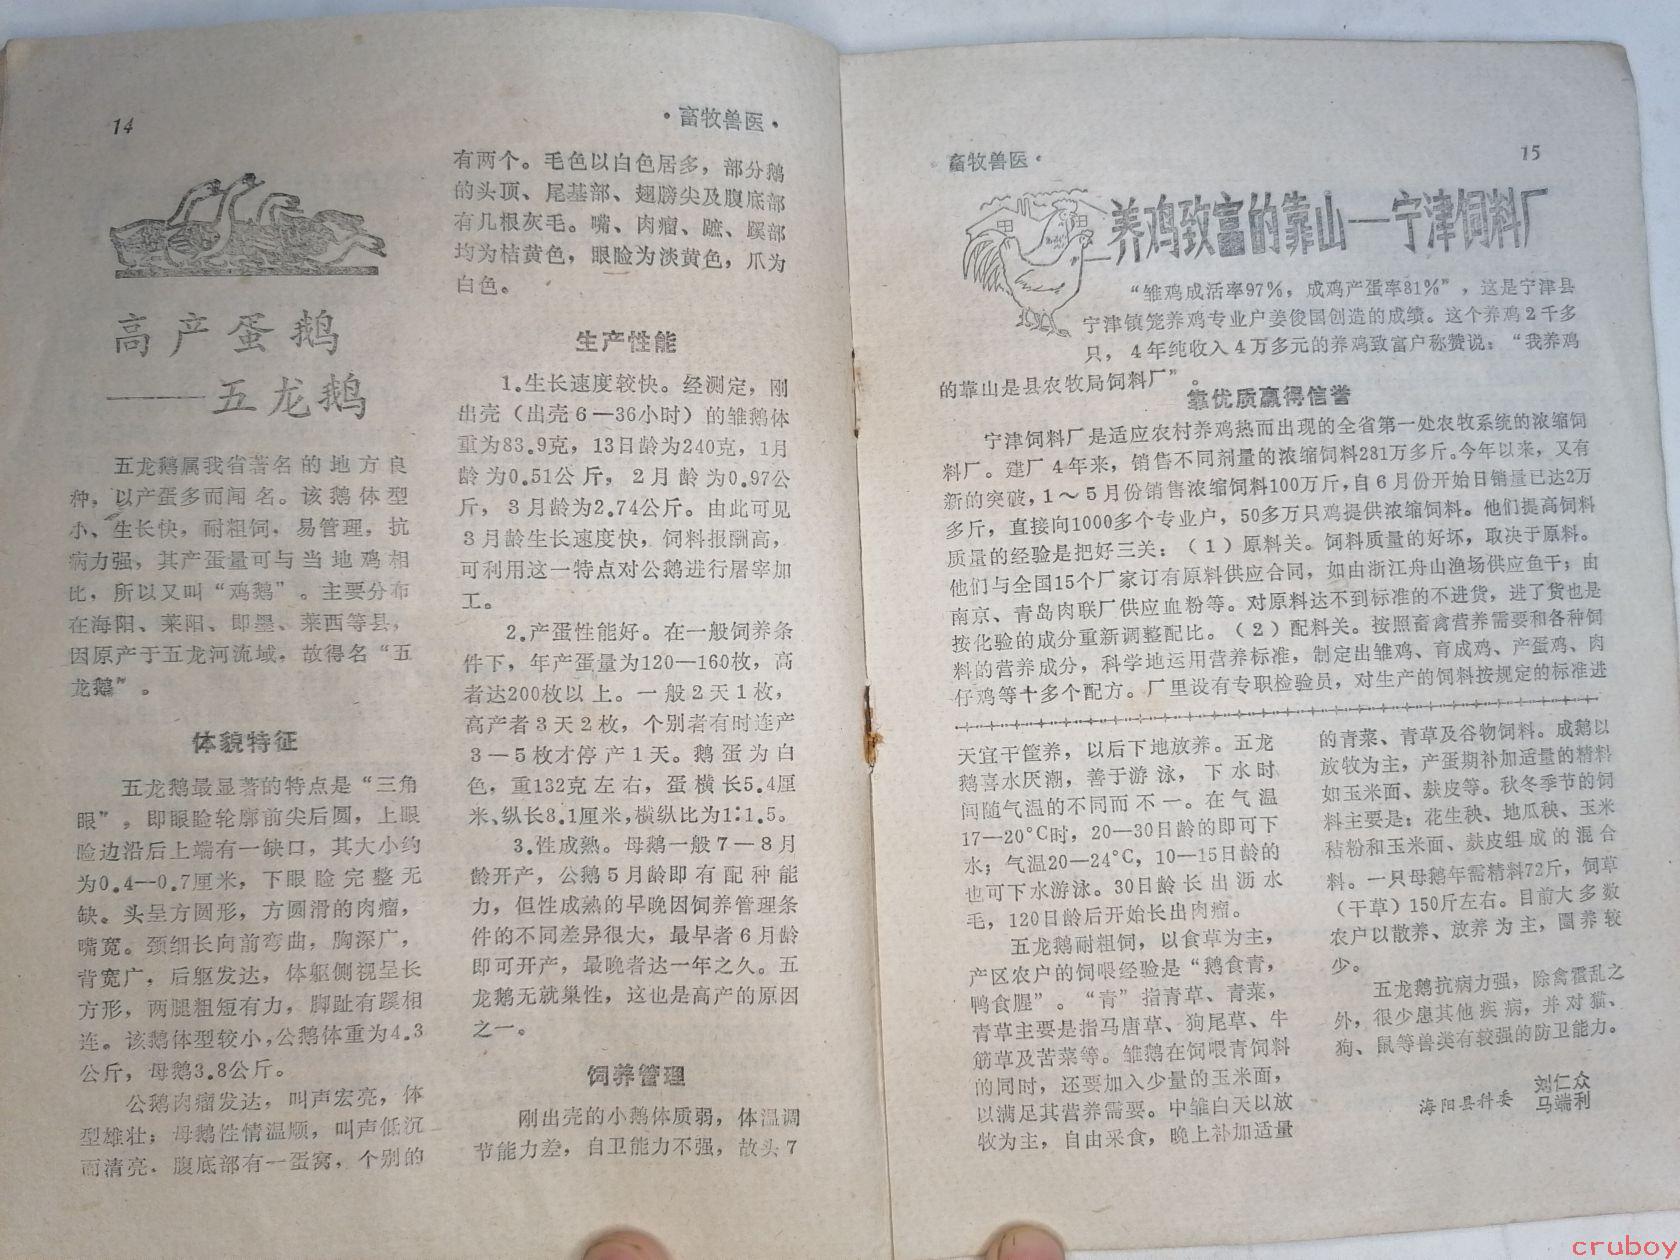 14
·畜牧兽医·
高产蛋鹅
——五龙鹅
五龙鹅属我省著名的地方良
种，以产蛋多而闻名。该鹅体型
小、生长快，耐粗饲，易管理，抗
病力强，其产蛋量可与当地鸡相
比，所以又叫“鸡鹅”。主要分布
在海阳、莱阳、即墨、莱西等县，
因原产于五龙河流域，故得名“五
龙鹅”。
体貌特征
五龙鹅最显著的特点是“三角
眼”，即眼睑轮廓前尖后圆，上眼
睑边沿后上端有一缺口，其大小约
为0.4—0.7厘米，下眼睑完整无
缺。头呈方圆形，方圆滑的肉瘤，
嘴宽。颈细长向前弯曲，胸深广，
背宽广，后躯发达，体躯侧视呈长
方形，两腿粗短有力，脚趾有蹼相
连。该鹅体型较小，公鹅体重为4.3
公斤，母鹅3.8公斤。
公鹅肉瘤发达，叫声宏亮，体
型雄壮；母鹅性情温顺，叫声低沉
而清亮．腹底部有一蛋窝，个别的
有两个。毛色以白色居多，部分鹅
的头顶、尾基部、翅膀尖及腹底部
有几根灰毛。嘴、肉瘤、蹠、蹼部
均为桔黄色，眼睑为淡黄色，爪为
白色。
生产性能
1.生长速度较快。经测定，刚
出壳（出壳6—36小时）的雏鹅体
重为83.9克，13日龄为240克，1月
龄为0.51公斤，2月龄为0.97公
斤，3月龄为2.74公斤。由此可见
3月龄生长速度快，饲料报酬高，
可利用这一特点对公鹅进行屠宰加
工。
2.产蛋性能好。在一般饲养条
件下，年产蛋量为120—160枚，高
者达200枚以上。一般2天1枚，
高产者3天2枚，个别者有时连产
3－5枚才停产1天。鹅蛋为白
色，重132克左右，蛋横长5.4厘
米、纵长8.1厘米，横纵比为1:1.5。
3.性成熟。母鹅一般7－8月
龄开产，公鹅5月龄即有配种能
力，但性成熟的早晚因饲养管理条
件的不同差异很大，最早者6月龄
即可开产，最晚者达一年之久。五
龙鹅无就巢性，这也是高产的原因
之一。
饲养管理
刚出壳的小鹅体质弱，体温调
节能力差，自卫能力不强，故头7
畜牧兽医·
15
养鸡致富的靠山—宁津饲料厂
“雏鸡成活率97%，成鸡产蛋率81%”，这是宁津县
宁津镇笼养鸡专业户姜俊国创造的成绩。这个养鸡2千多
只，4年纯收入4万多元的养鸡致富户称赞说：“我养鸡
的靠山是县农牧局饲料厂”。
靠优质赢得信誉
宁津饲料厂是适应农村养鸡热而出现的全省第一处农牧系统的浓缩饲
料厂。建厂4年来，销售不同剂量的浓缩饲料281万多斤。今年以来，又有
新的突破，1～5月份销售浓缩饲料100万斤，自6月份开始日销量已达2万
多斤，直接向1000多个专业户，50多万只鸡提供浓缩饲料。他们提高饲料
质量的经验是把好三关：（1）原料关。饲料质量的好坏，取决于原料。
他们与全国15个厂家订有原料供应合同，如由浙江舟山渔场供应鱼干；由
南京、青岛肉联厂供应血粉等。对原料达不到标准的不进货，进了货也是
按化验的成分重新调整配比。（2）配料关。按照畜禽营养需要和各种饲
料的营养成分，科学地运用营养标准，制定出雏鸡、育成鸡、产蛋鸡、肉
仔鸡等十多个配方。厂里设有专职检验员，对生产的饲料按规定的标准进
天宜干筐养，以后下地放养。五龙
鹅喜水厌潮，善于游泳，下水时
间随气温的不同而不一。在气温
17—20°C时，20—30日龄的即可下
水；气温20—24°C，10—15日龄的
也可下水游泳。30日龄长出沥水
毛，120日龄后开始长出肉瘤。
五龙鹅耐粗饲，以食草为主，
产区农户的饲喂经验是“鹅食青，
鸭食腥”。“青”指青草、青菜，
青草主要是指马唐草、狗尾草、牛
筋草及苦菜等。雏鹅在饲喂青饲料
的同时，还要加入少量的玉米面，
以满足其营养需要。中雏白天以放
牧为主，自由采食，晚上补加适量
的青菜、青草及谷物饲料。成鹅以
放牧为主，产蛋期补加适量的精料
如玉米面、麸皮等。秋冬季节的饲
料主要是：花生秧、地瓜秧、玉米
秸粉和玉米面、麸皮组成的混合
料。一只母鹅年需精料72斤，饲草
（干草）150斤左右。目前大多数
农户以散养、放养为主，圈养较
少。
五龙鹅抗病力强，除禽霍乱之
外，很少患其他疾病，并对猫、
狗、鼠等兽类有较强的防卫能力。
海阳县科委 刘仁众
马端利
cruboy